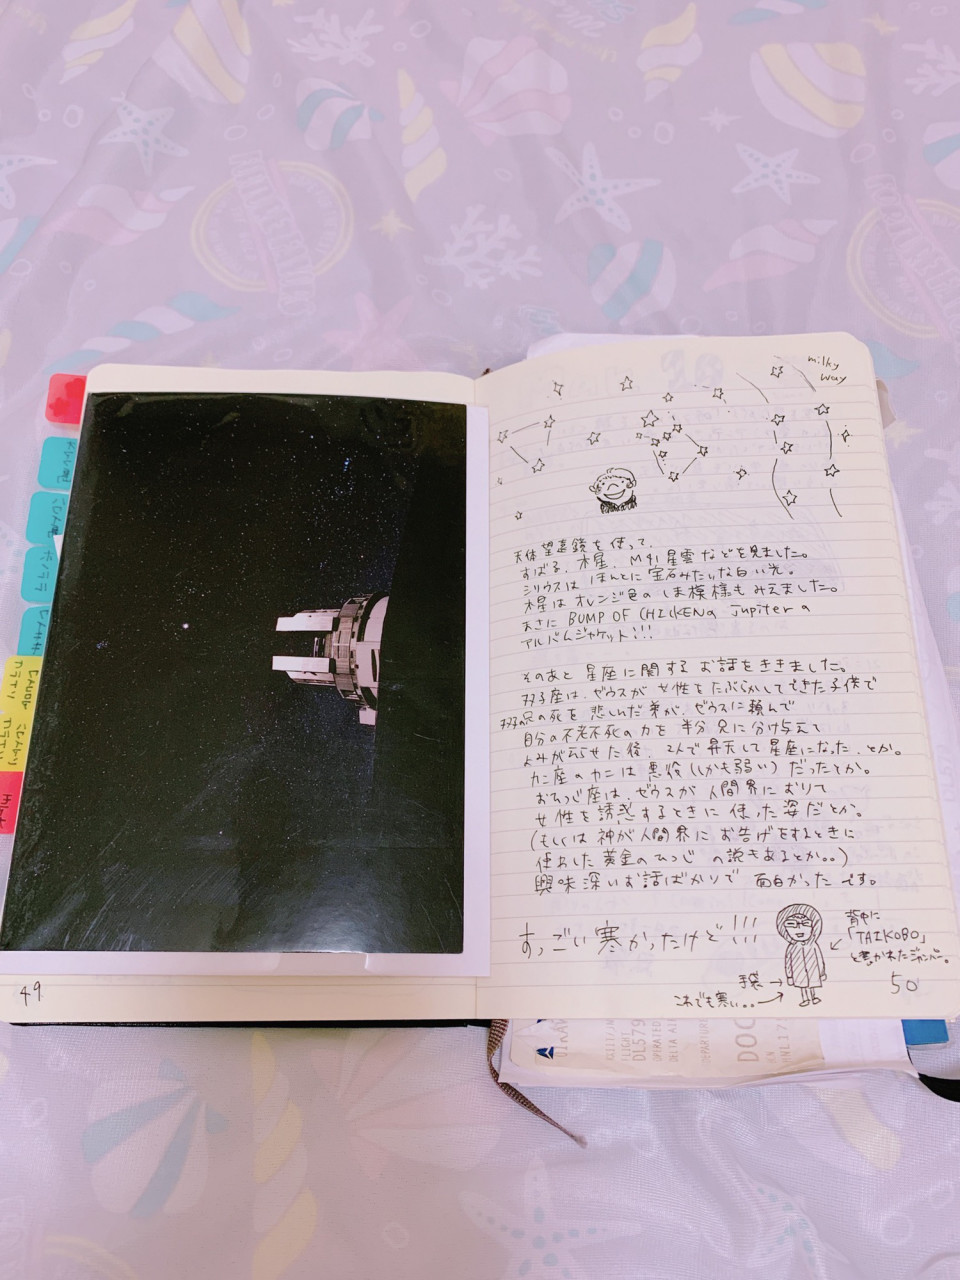 milky
way
天体望遠鏡を使って、
すばる、木星、M41星雲などを見ました。
シリウスは ほんとに宝石みたいな白い光。
木星はオレンジ色のしま模様もみえました。
まさに BUMP OF CHICKENの jupiterの
アルバムジャケット!!!
そのあと 星座に関する お話をききました。
双子座は、ゼウスが 女性をたぶらかしてできた子供で
双子の兄の死を 悲しんだ弟が、ゼウスに頼んで
自分の不老不死の力を 半分 兄に分け与えて
よみがえらせた後、2人で昇天して星座になった、とか。
カニ座のカニは 悪役(しかも弱い)だったとか。
おひつじ座は、ゼウスが 人間界におりて
女性を誘惑するときに 使った姿だとか。
(もしくは 神が人間界に お告げをするときに
使わした 黄金のひつじ の説もあるとか。。)
興味深いお話ばかりで 面白かった です。
すっごい寒かったけど!!!
背中に
「TAIKOBO」
と書かれたジャンパー。
手袋→
これでも寒い。。→
49
50
FLIGHT
DL579